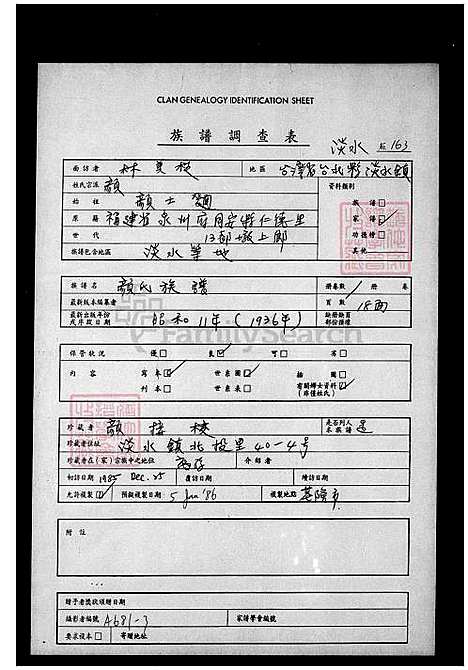 CLAN GENEALOGY IDENTIFICATION SHEET
族譜調查表
淡水 163
面訪者 林 地區 台灣省台北縣淡水鎮
姓氏宗派 顏 資料類別
始祖 顏士 族譜□
原籍 福建省泉州府同安縣仁德里 家譜☑
世代 13 功德榜□
族譜包含地區 淡水等地 其他
族譜名 顏氏族譜 冊卷數 / 冊 卷
最新版本編纂者 頁數 18面
最新出版年份或序跋日期 昭和11年(1936年) 缺冊缺頁部份描核
保管狀況 優□ 良☑ 可□ 劣□
內容 寫本☑ 世系圖☑ 插圖□
刊本□ 世系表□ 有關婦女資料☑(非僅姓氏)
珍藏者 顏 是否列入本族譜 是
珍藏者住址 淡水鎮北投里40-4号
珍藏者在(家)宗族中之地位 介紹者
初訪日期 1985 Dec. 25 覆訪日期 續訪日期
允許複製☑ 預擬複製日期 5 Jan '86 複製地點 基隆市
附註
贈予者獎狀頒贈日期
攝影者編號 A681-3 家譜學會編號
要求複本□ 寄贈地址
FamilySearch